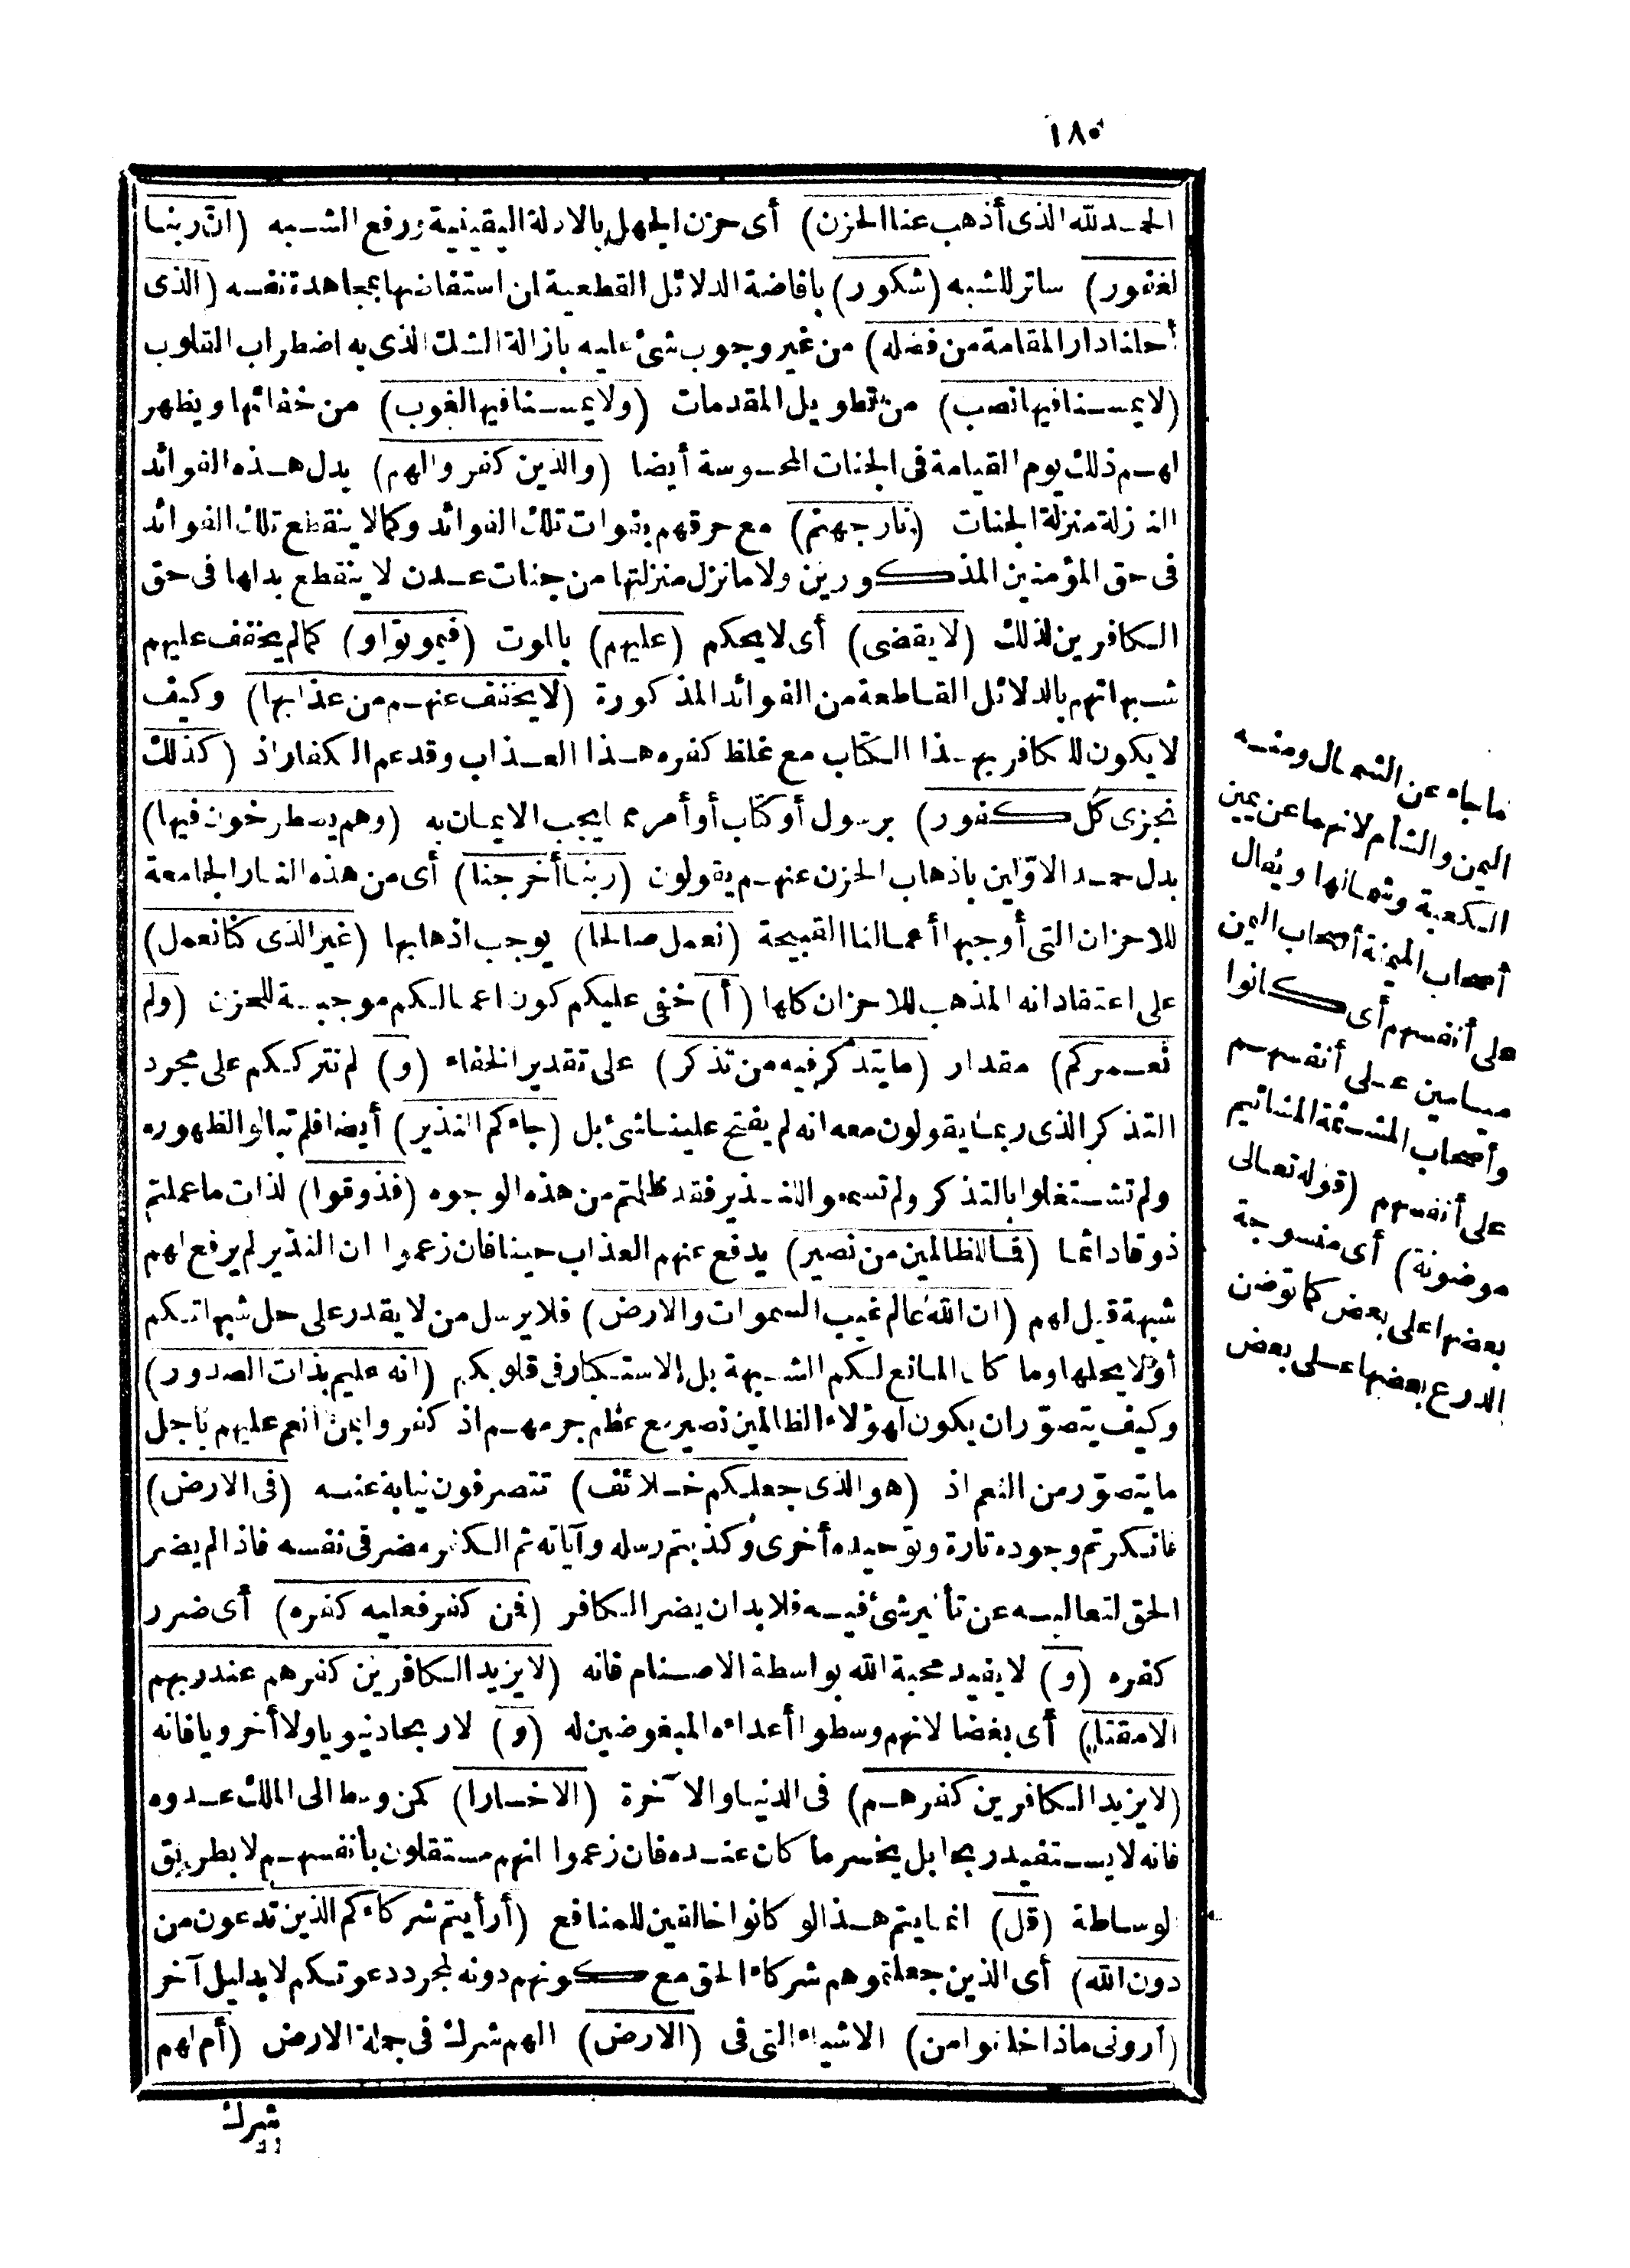 ١٨٠
الحمد لله الذى أذهب عنا الحزن) أى حزن الجهل بالادلة اليقينية ورفع الشبه (انّ ربنا
لغفور) ساتر للشبه (شكور) بافاضة الدلائل القطعية لمن استفاضها بمجاهدة نفسه (الذى
أحلنا دار المقامة من فضله) من غير وجوب شئ عليه بازالة الشك الذى به اضطراب القلوب
(لا يمسنا فيها نصب) من تطويل المقدمات (ولا يمسنا فيها لغوب) من خفائها ويظهر
لهم ذلك يوم القيامة فى الجنات المحسوسة أيضا (والذين كفروا لهم) بدل هذه الفوائد
النازلة منزلة الجنات (نار جهنم) مع حرقهم بفوات تلك الفوائد وكما لا ينقطع تلك الفوائد
فى حق المؤمنين المذكورين ولا ما نزل منزلتها من جنات عدن لا ينقطع بدلها فى حق
الكافرين لذلك (لا يقضى) أى لا يحكم (عليهم) بالموت (فيموتوا و) كما لم يخفف عليهم
شبهاتهم بالدلائل القاطعة من الفوائد المذكورة (لا يخفف عنهم من عذابها) وكيف
لا يكون للكافر بهذا الكتاب مع غلظ كفره هذا العذاب وقد عم الكفار اذ (كذلك
نجزى كل كفور) برسول أو كتاب أو أمر مما يجب الايمان به (وهم يصطرخون فيها)
بدل حمد الاوّلين باذهاب الحزن عنهم يقولون (ربنا أخرجنا) أى من هذه النار الجامعة
للاحزان التى أوجبها أعمالنا القبيحة (نعمل صالحا) يوجب اذهابها (غير الذى كنا نعمل)
على اعتقاد انه المذهب للاحزان كلها (أ) خفى عليكم كون اعمالكم موجبة للحزن (ولم
نعمركم) مقدار (ما يتذكر فيه من تذكر) على تقدير الخفاء (و) لم نترككم على مجرد
التذكر الذى ربما يقولون معه انه لم يفتح علينا شئ بل (جاءكم النذير) أيضا فلم تبالوا لظهوره
ولم تشتغلوا بالتذكر ولم تسمعوا النذير فقد ظلمتم من هذه الوجوه (فذوقوا) لذات ما عملتم
ذوقا دائما (فما للظالمين من نصير) يدفع عنهم العذاب حينا فان زعموا ان النذير لم يرفع لهم
شبهة قيل لهم (ان الله عالم غيب السموات والارض) فلا يرسل من لا يقدر على حل شبهاتكم
أو لا يحلها وما كان المانع لكم الشبهة بل الاستكبار فى قلوبكم (انه عليم بذات الصدور)
وكيف يتصوّر ان يكون لهؤلاء الظالمين نصير مع عظم جرمهم اذ كفروا بمن أنعم عليهم بأجل
ما يتصوّر من النعم اذ (هو الذى جعلكم خلائف) تتصرفون نيابة عنه (فى الارض)
فانكرتم وجوده تارة وتوحيده أخرى وكذبتم رسله وآياته ثم الكفر مضر فى نفسه فاذا لم يضر
الحق لتعاليه عن تأثير شئ فيه فلا بد ان يضر الكافر (فمن كفر فعليه كفره) أى ضرر
كفره (و) لا يفيد محبة الله بواسطة الاصنام فانه (لا يزيد الكافرين كفرهم عند ربهم
الا مقتا) أى بغضا لانهم وسطوا أعداءه المبغوضين له (و) لا ربحا دنيويا ولا أخرويا فانه
(لا يزيد الكافرين كفرهم) فى الدنيا والا آخرة (الا خسارا) كمن وسط الى الملك عدوه
فانه لا يستفيد ربحا بل يخسر ما كان عنده فان زعموا انهم مستقلون بأنفسهم لا بطريق
لوساطة (قل) انما يتم هذا لو كانوا خالقين للمنافع (أرأيتم شركاءكم الذين تدعون من
دون الله) أى الذين جعلتموهم شركاء الحق مع كونهم دونه لمجرد دعوتكم لا بدليل آخر
(أرونى ماذا خلقوا من) الاشياء التى فى (الارض) الهم شرك فى جملة الارض (أم لهم
شرك
ما جاء عن الشمال ومنه
اليمن والشأم لانهما عن يمين
الكعبة وشمالها ويقال
أصحاب الميمنة أصحاب اليمن
على أنفسهم أى كانوا
ميامين على أنفسهم
وأصحاب المشئمة المشائيم
على أنفسهم (قوله تعالى
موضونة) أى منسوجة
بعضها على بعض كما توضن
الدرع بعضها على بعض